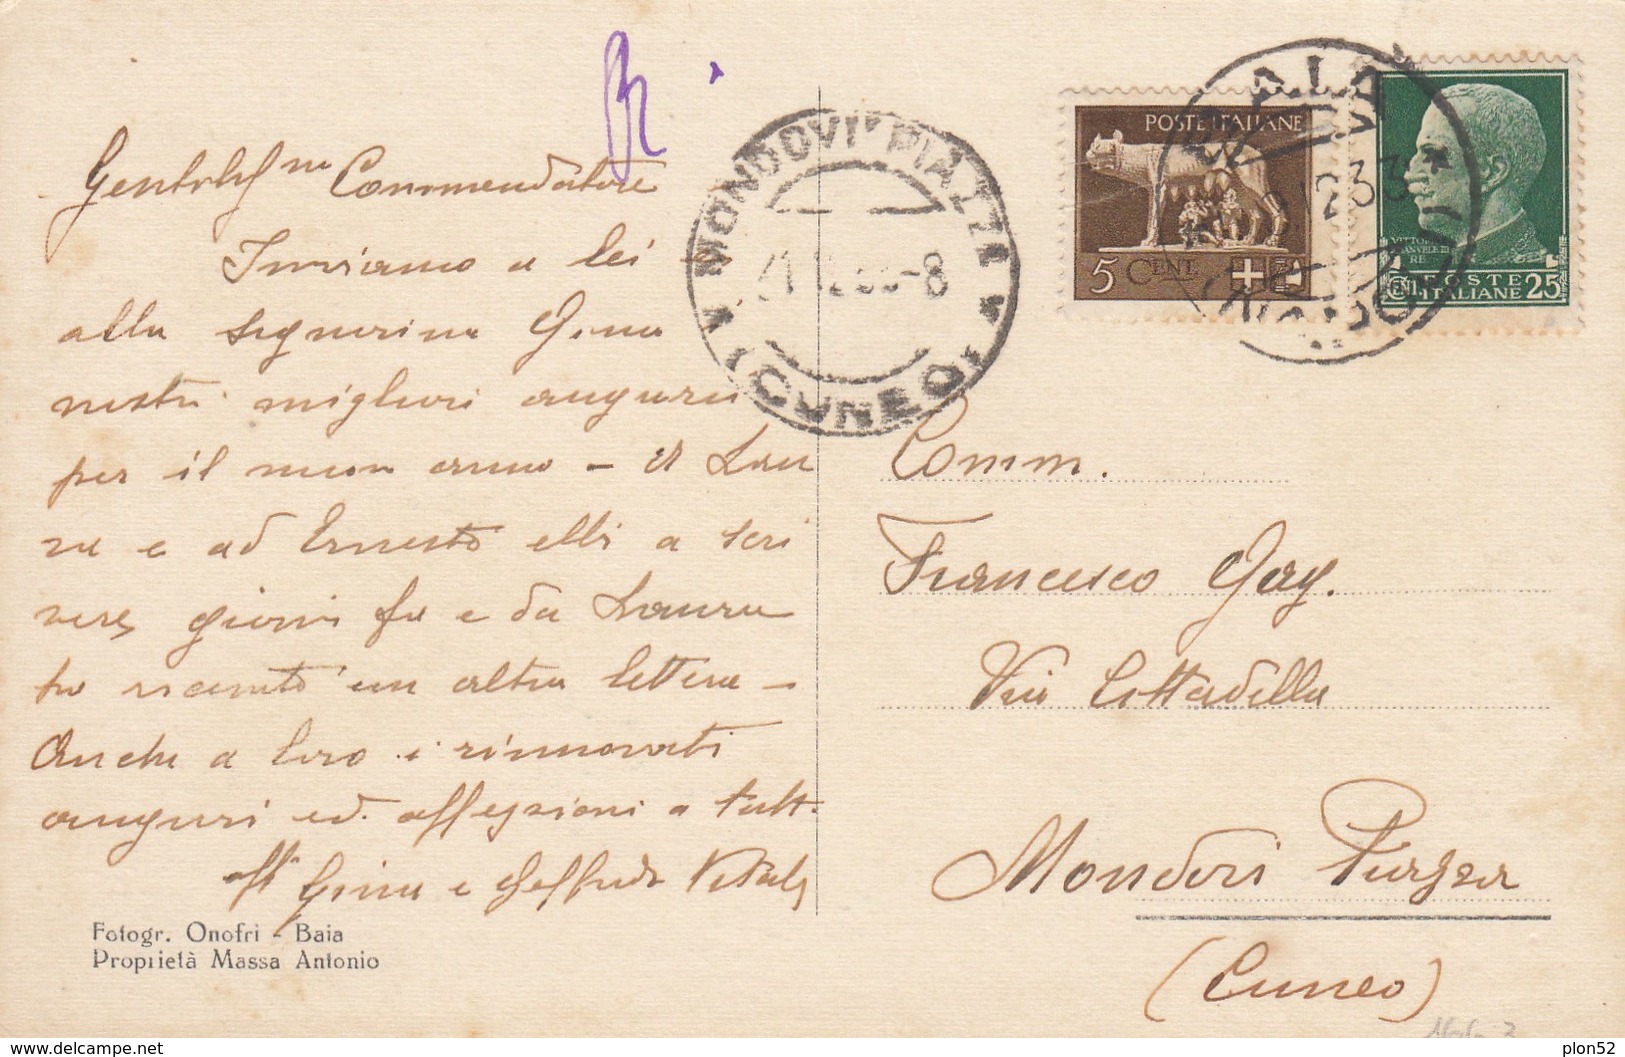 Gentilissmo Commendatore
Inviamo a lei e
alla signorina Gina
nostri migliori auguri
per il nuovo anno - A Lau
ra e ad Ernesto ebbi a scri
vere giorni fa e da Laura
ho ricevuto un altra lettera -
Anche a loro i rinnovati
auguri ed affezioni a tutti.
Aff Gina e Goffredo Vitale
Fotogr. Onofri - Baia
Proprietà Massa Antonio
MONDOVI' PIAZZA
(CUNEO)
-8
POSTE ITALIANE
5 CENT.
BAIA
12.33
VITTORIO
EMANUELE III
RE
POSTE
ITALIANE 25
CENT
NAPOLI
Comm.
Francesco Gay.
Via Cittadella
Mondovi Piazza
(Cuneo)
delcampe.net
plon52